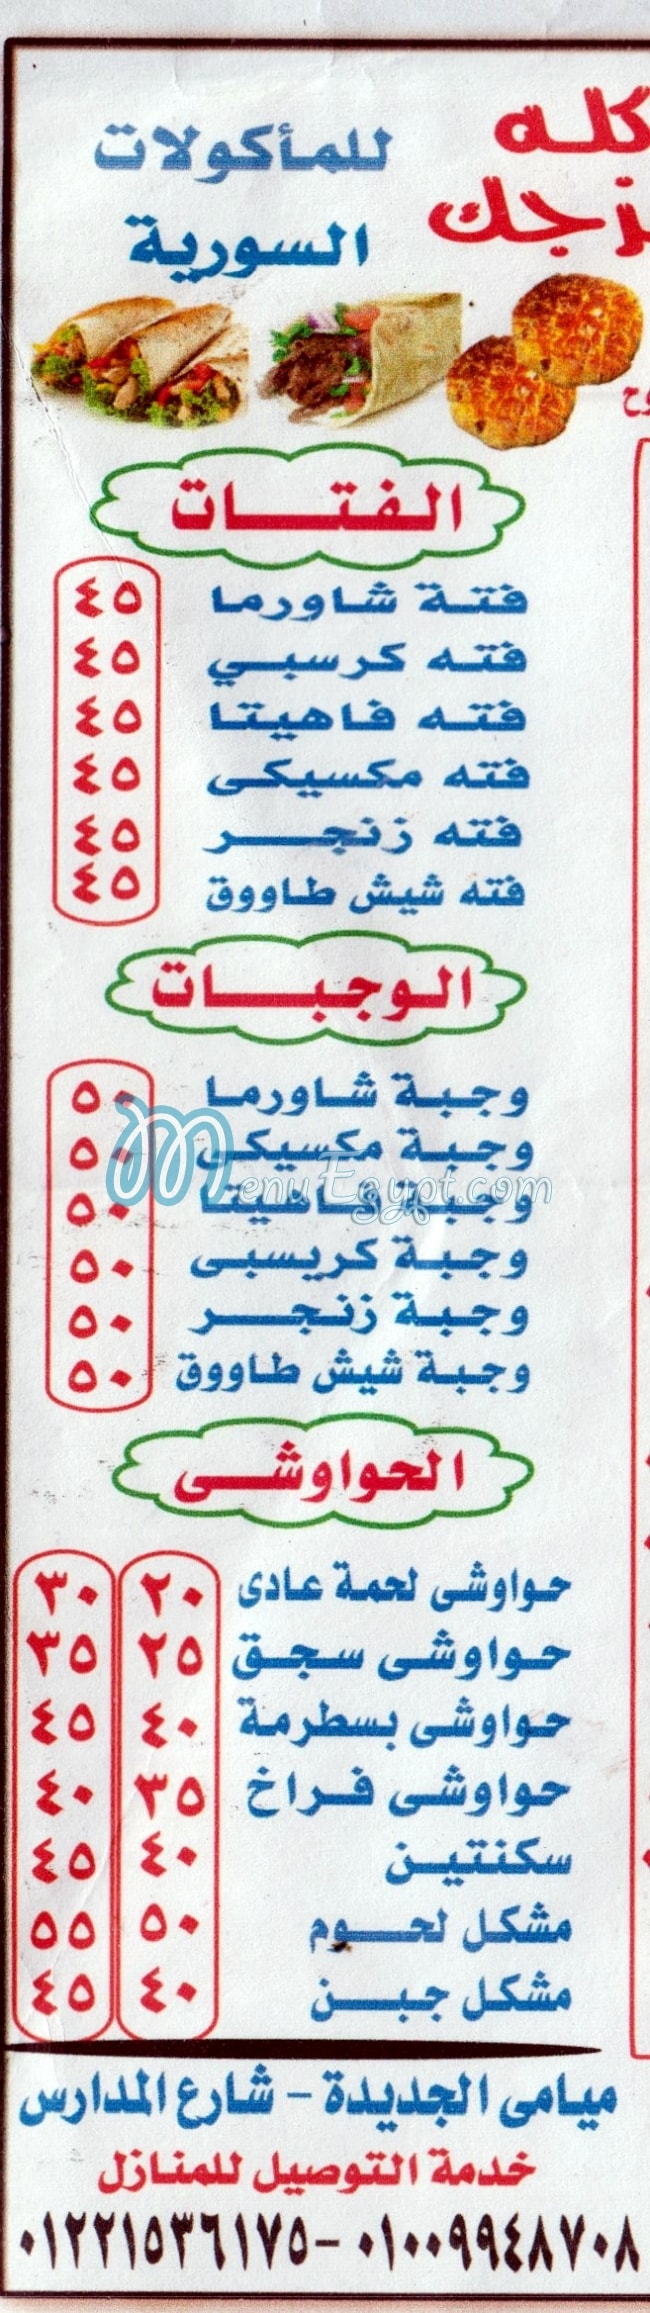 للمأكولات
السورية
الفتات
فتة شاورما ٤٥
فته كرسبي ٤٥
فته فاهيتا ٤٥
فته مكسيكى ٤٥
فته زنجر ٤٥
فته شيش طاووق ٤٥
الوجبات
وجبة شاورما ٥٠
وجبة مكسيكى ٥٠
وجبة فاهيتا ٥٠
MenuEgypt.com
وجبة كريسبى ٥٠
وجبة زنجر ٥٠
وجبة شيش طاووق ٥٠
الحواوشى
حواوشى لحمة عادى ٢٠ ٣٠
حواوشى سجق ٢٥ ٣٥
حواوشى بسطرمة ٤٠ ٤٥
حواوشى فراخ ٣٥ ٤٠
سكنتين ٤٠ ٤٥
مشكل لحوم ٥٠ ٥٥
مشكل جبن ٤٠ ٤٥
ميامى الجديدة - شارع المدارس
خدمة التوصيل للمنازل
٠١٢٢١٥٣٦١٧٥ - ٠١٠٠٩٩٤٨٧٠٨